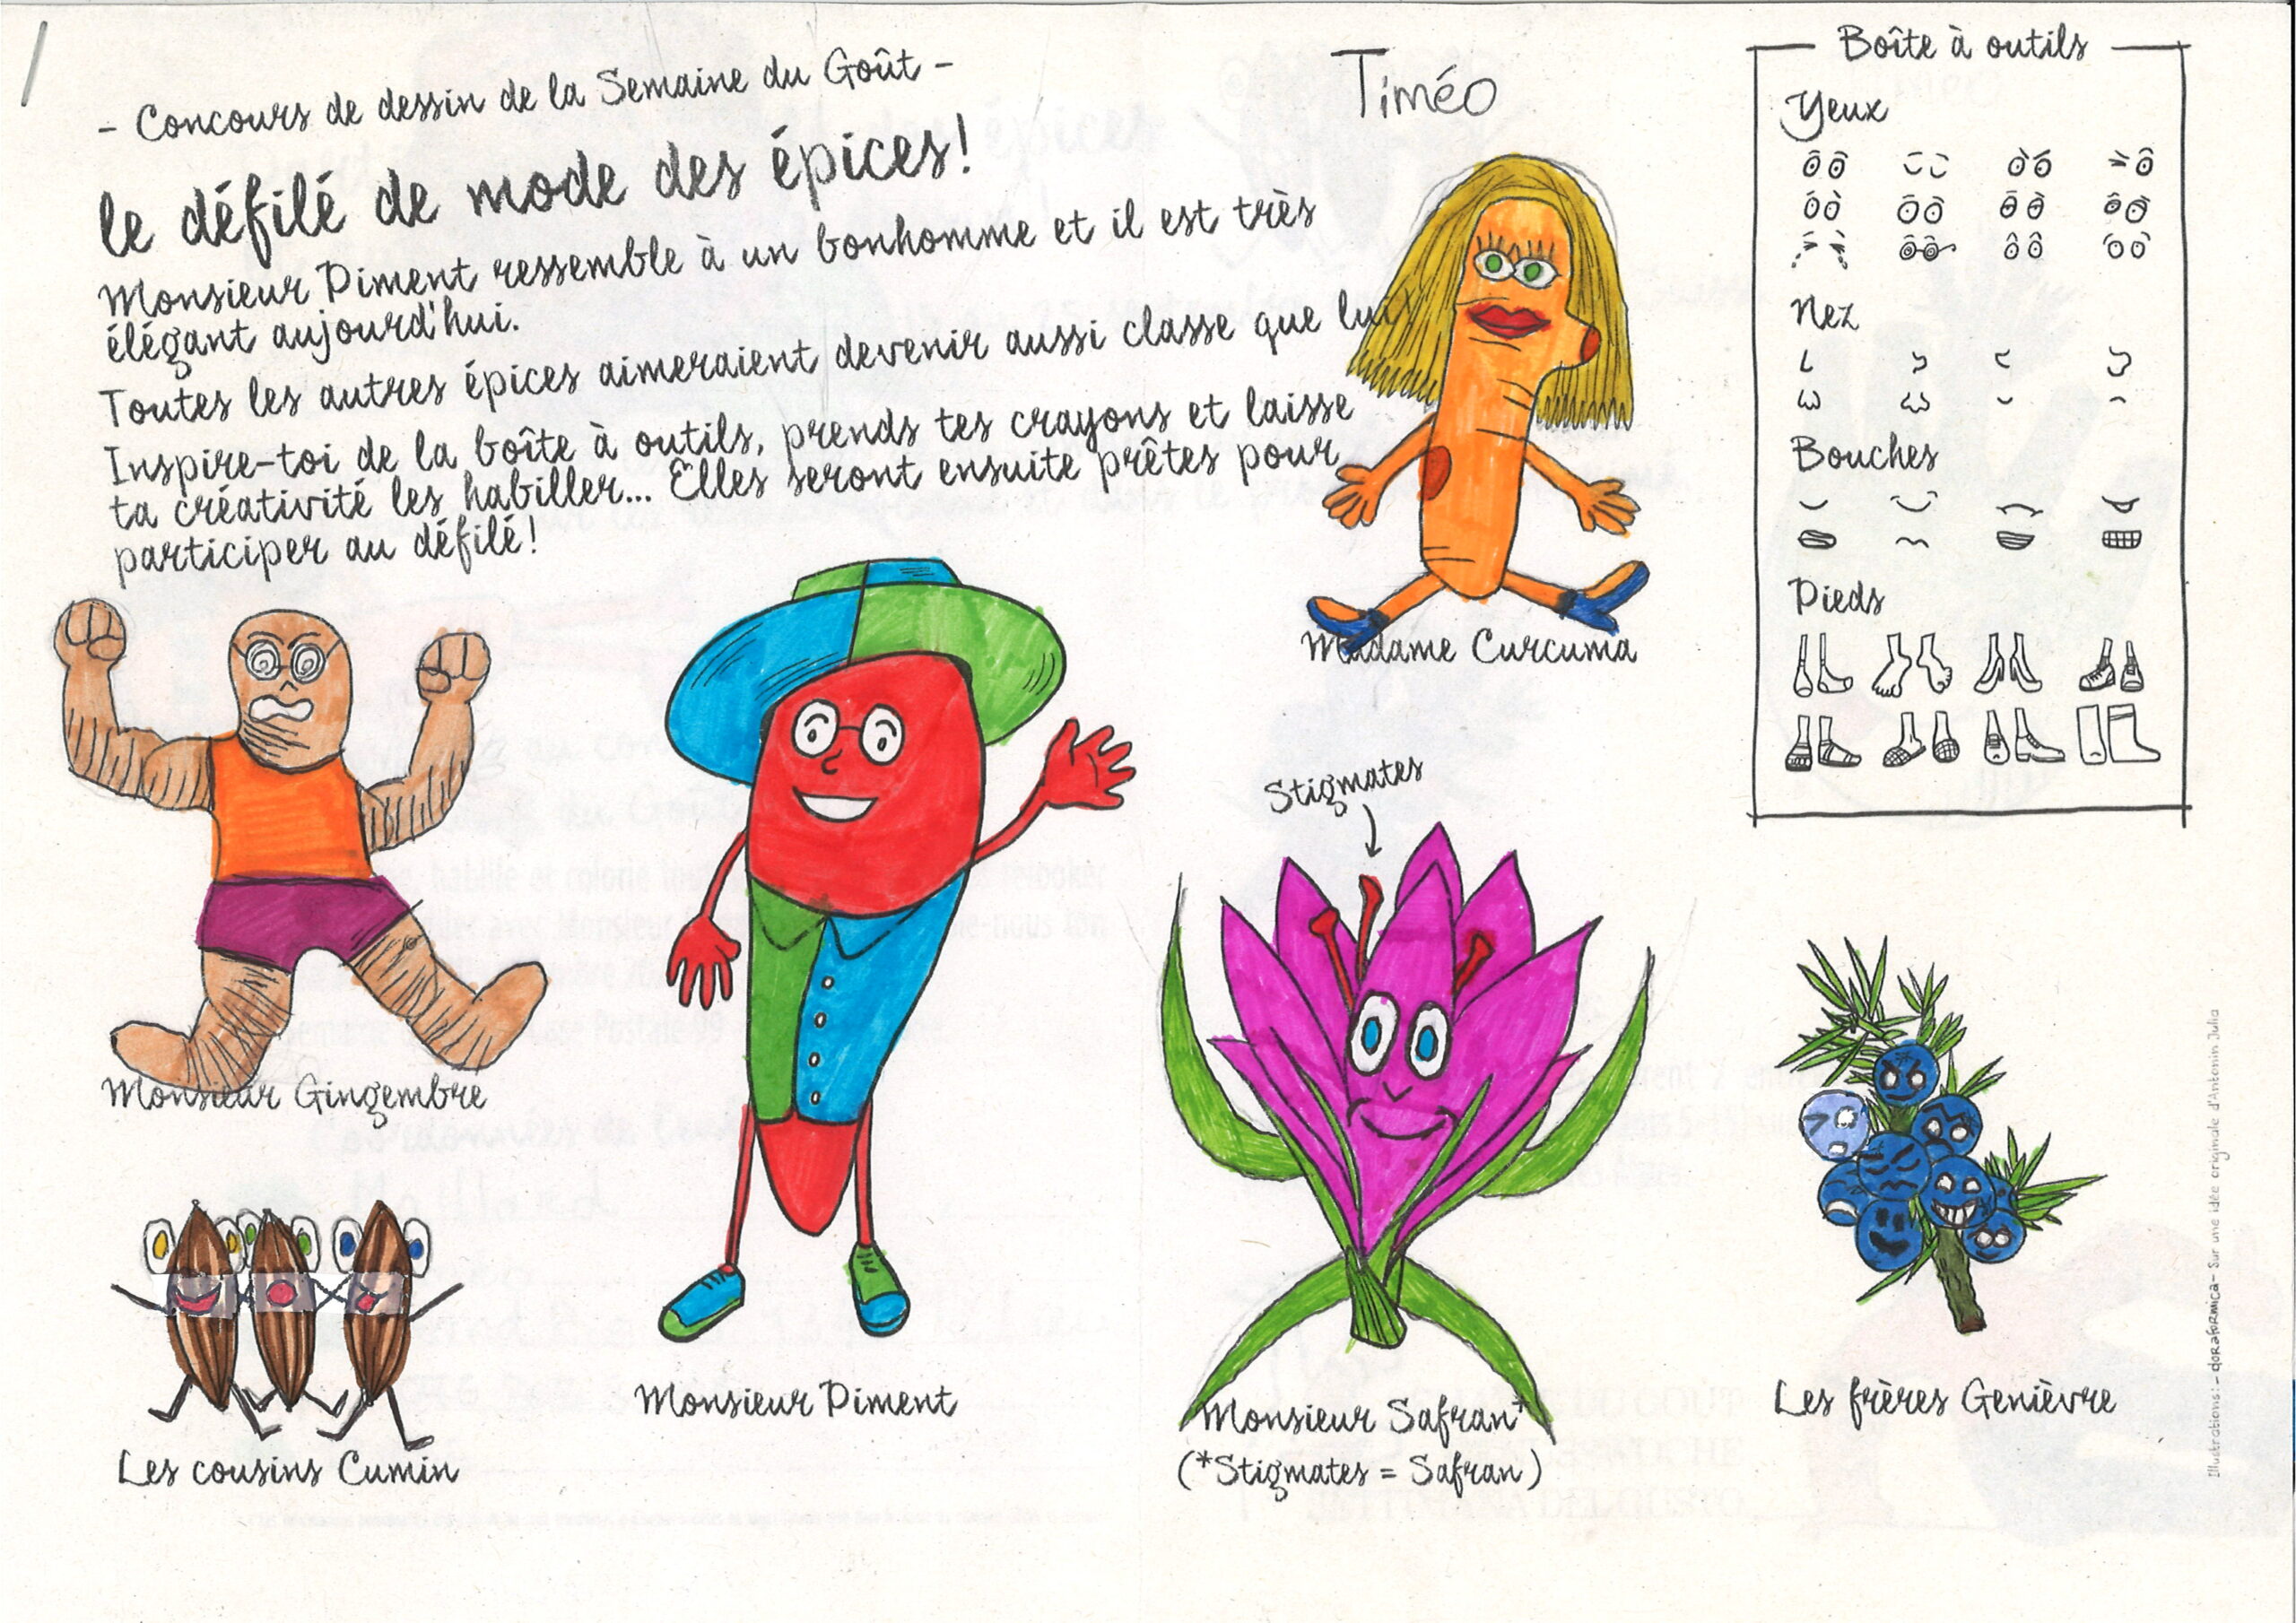 - Concours de dessin de la Semaine du Goût -
le défilé de mode des épices!
Monsieur Piment ressemble à un bonhomme et il est très
élégant aujourd'hui.
Toutes les autres épices aimeraient devenir aussi classe que lui
Inspire-toi de la boîte à outils, prends tes crayons et laisse
ta créativité les habiller... Elles seront ensuite prêtes pour
participer au défilé!
Timéo
Boîte à outils
Yeux
Nez
Bouches
Pieds
Madame Curcuma
Monsieur Gingembre
Stigmates
Les cousins Cumin
Monsieur Piment
Monsieur Safran*
(*Stigmates = Safran)
Les frères Genièvre
Illustrations: - doraformica - Sur une idée originale d'Antonin Julia